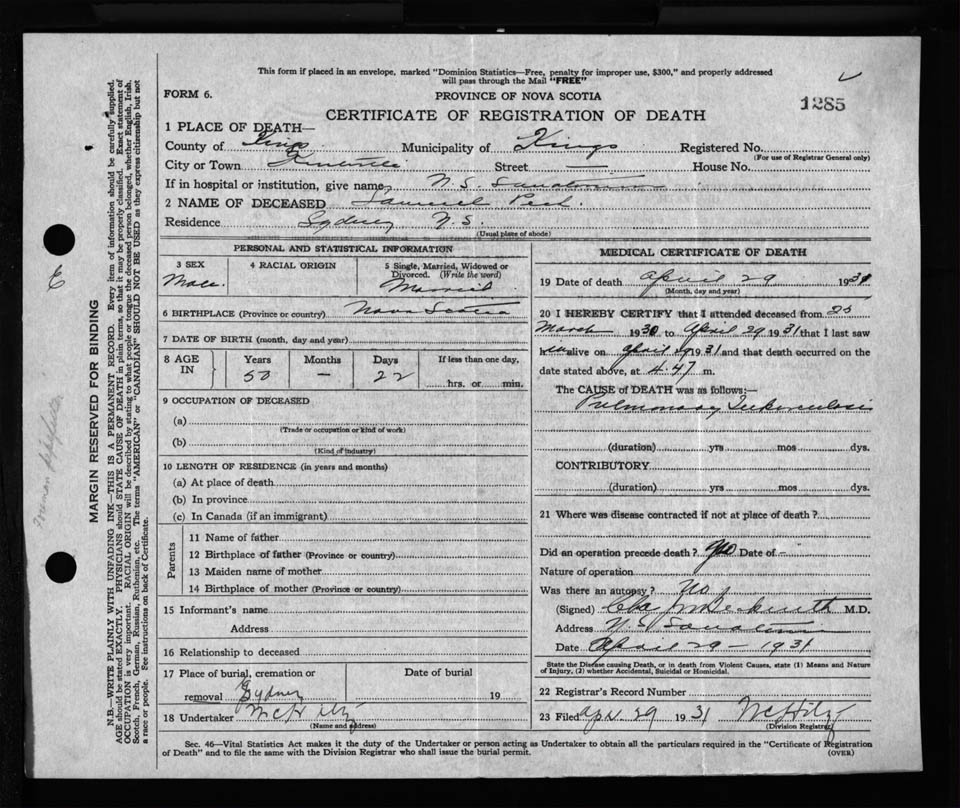 This form if placed in an envelope, marked "Dominion Statistics—Free, penalty for improper use, $300," and properly addressed
will pass through the Mail "FREE"
FORM 6.
PROVINCE OF NOVA SCOTIA
1285
CERTIFICATE OF REGISTRATION OF DEATH
1 PLACE OF DEATH—
County of Kings Municipality of Kings Registered No.
(For use of Registrar General only)
City or Town Kentville Street — House No.
If in hospital or institution, give name N. S. Sanatorium
2 NAME OF DECEASED Samuel
Residence Sydney N. S.
(Usual place of abode)
PERSONAL AND STATISTICAL INFORMATION
3 SEX 4 RACIAL ORIGIN 5 Single, Married, Widowed or
Divorced. (Write the word)
Male. Married
6 BIRTHPLACE (Province or country) Nova Scotia
7 DATE OF BIRTH (month, day and year)
8 AGE IN Years Months Days If less than one day,
50 — 22 hrs. or min.
9 OCCUPATION OF DECEASED
(a)
(Trade or occupation or kind of work)
(b)
(Kind of industry)
10 LENGTH OF RESIDENCE (in years and months)
(a) At place of death
(b) In province
(c) In Canada (if an immigrant)
Parents
11 Name of father
12 Birthplace of father (Province or country)
13 Maiden name of mother
14 Birthplace of mother (Province or country)
15 Informant's name
Address
16 Relationship to deceased
17 Place of burial, cremation or Date of burial
removal Sydney 19
18 Undertaker
(Name and address)
MEDICAL CERTIFICATE OF DEATH
19 Date of death April 29 1931
(Month, day and year)
20 I HEREBY CERTIFY that I attended deceased from 25
March 1930 to April 29 1931 that I last saw
h alive on April 29 1931 and that death occurred on the
date stated above, at 4.47 m.
The CAUSE of DEATH was as follows:—
Pulmonary Tuberculosis
(duration) yrs mos dys.
CONTRIBUTORY
(duration) yrs mos dys.
21 Where was disease contracted if not at place of death?
Did an operation precede death? Date of -
Nature of operation
Was there an autopsy? No
(Signed) Beckwith M.D.
Address N. S. Sanatorium
Date April 29 - 1931
State the Disease causing Death, or in death from Violent Causes, state (1) Means and Nature
of Injury, (2) whether Accidental, Suicidal or Homicidal.
22 Registrar's Record Number
23 Filed Apr. 29 1931
(Division Registrar)
Sec. 46—Vital Statistics Act makes it the duty of the Undertaker or person acting as Undertaker to obtain all the particulars required in the "Certificate of Registration
of Death" and to file the same with the Division Registrar who shall issue the burial permit. (OVER)
MARGIN RESERVED FOR BINDING
N.B.—WRITE PLAINLY WITH UNFADING INK—THIS IS A PERMANENT RECORD. Every item of information should be carefully supplied.
AGE should be stated EXACTLY. PHYSICIANS should STATE CAUSE OF DEATH in plain terms, so that it may be properly classified. Exact statement of
OCCUPATION is very important. RACIAL ORIGIN will be described by stating to what people or tongue the deceased person belonged, whether English, Irish,
Scotch, French, German, Russian, Ruthenian, etc. The terms "AMERICAN" or "CANADIAN" SHOULD NOT BE USED as they express citizenship but not
a race or people. See instructions on back of Certificate.